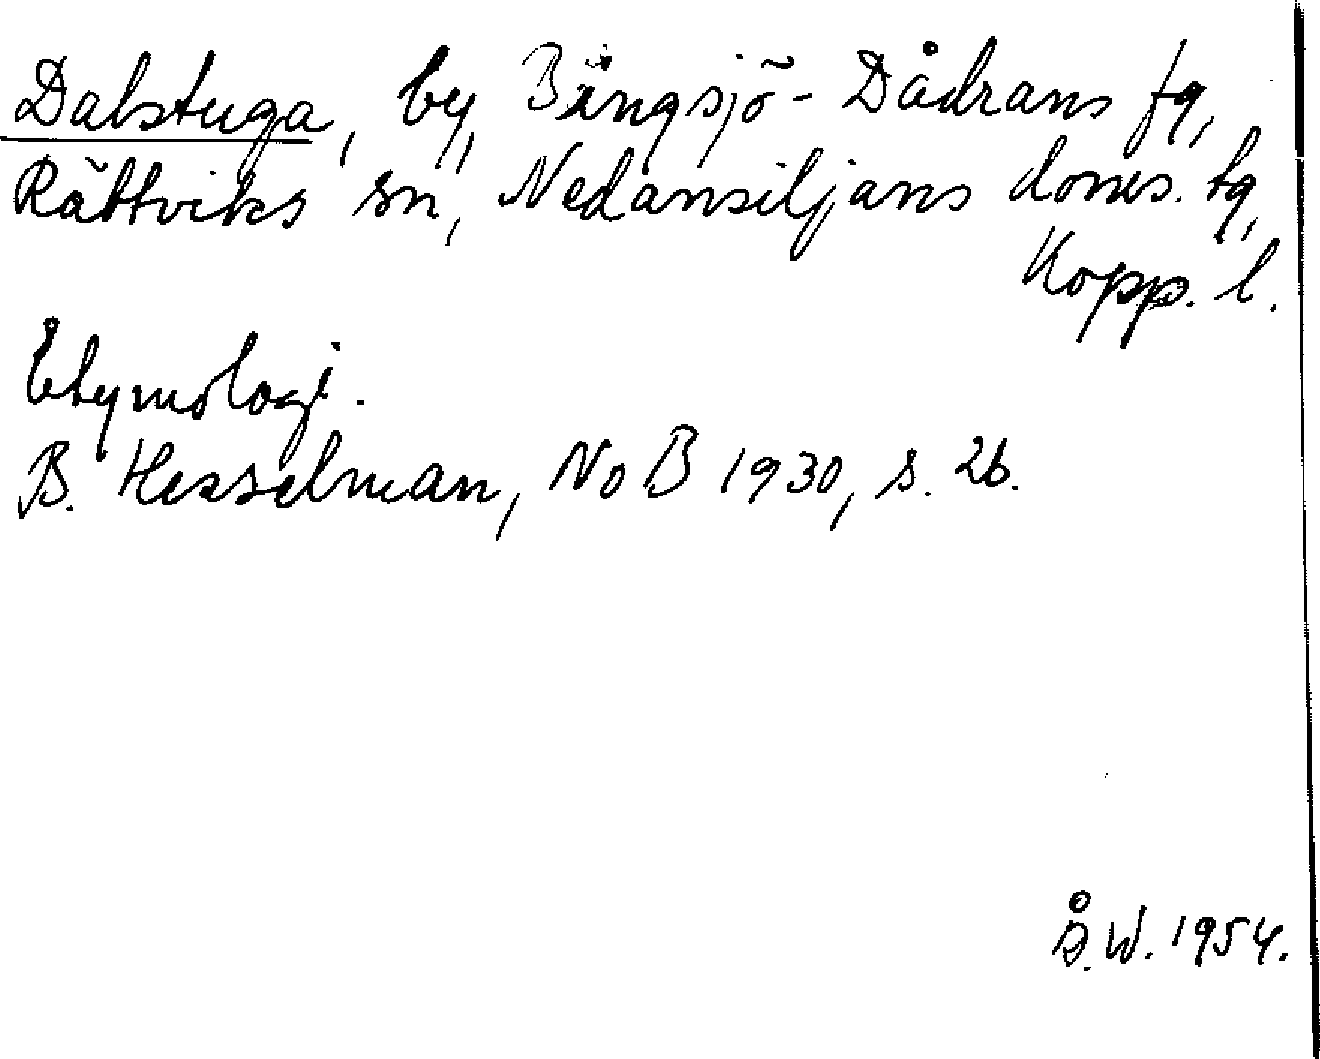 Dalstuga, by, Bingsjö-Dådrans fg,
Rättviks sn, Nedansiljans doms. tg,
Kopp. l.
Etymologi.
B. Hesselman, NoB 1930, s. 26.
Å.W. 1954.